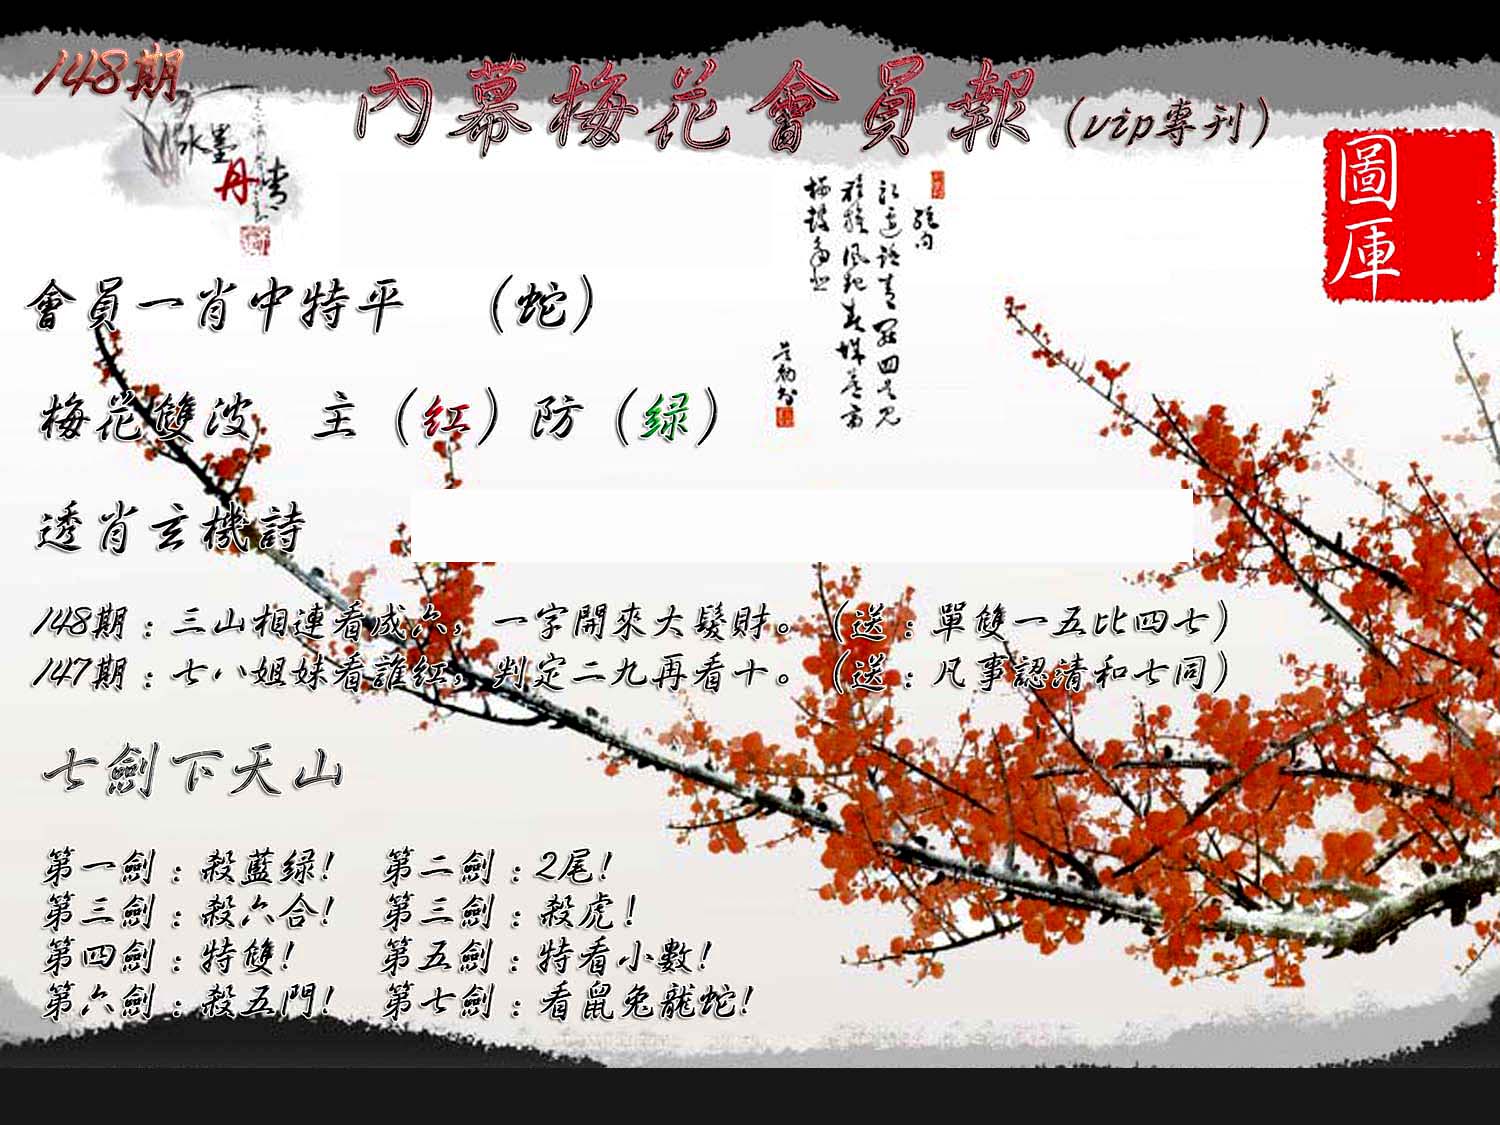 148期
內幕梅花會員報（vip專刊）
水墨
丹青
圖庫
會員一肖中特平 （蛇）
梅花雙波 主（红）防（绿）
透肖玄機詩
148期：三山相連看成六，一字開來大發財。（送：單雙一五比四七）
147期：七八姐妹看誰紅，判定二九再看十。（送：凡事認清和七同）
七劍下天山
第一劍：殺藍绿! 第二劍：2尾!
第三劍：殺六合! 第三劍：殺虎!
第四劍：特雙! 第五劍：特看小數!
第六劍：殺五門! 第七劍：看鼠兔龍蛇!